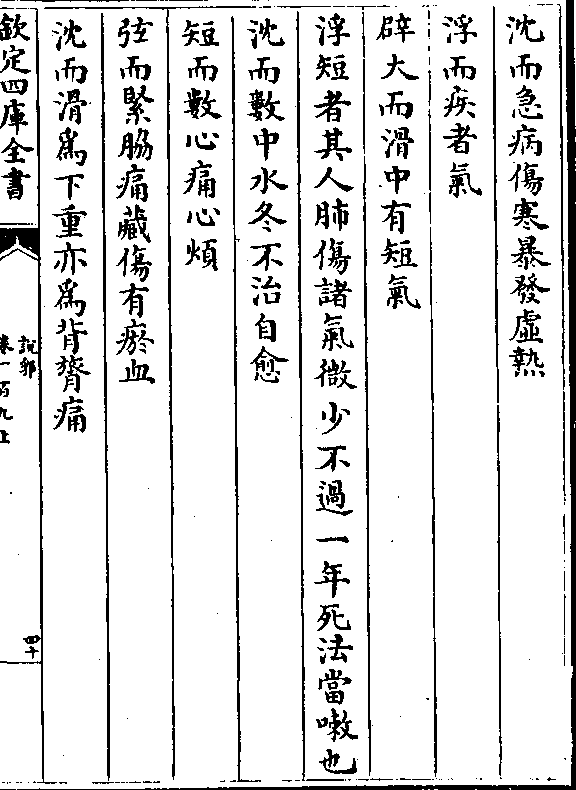 沈而急病傷寒暴發虛熱
浮而疾者氣
辟大而滑中有短氣
浮短者其人肺傷諸氣微少不過一年死法當嗽也
沈而數中水冬不治自愈
短而數心痛心煩
弦而緊脇痛藏傷有瘀血
沈而滑為下重亦為背膂痛
欽定四庫全書
說郛
卷一百九上
四十